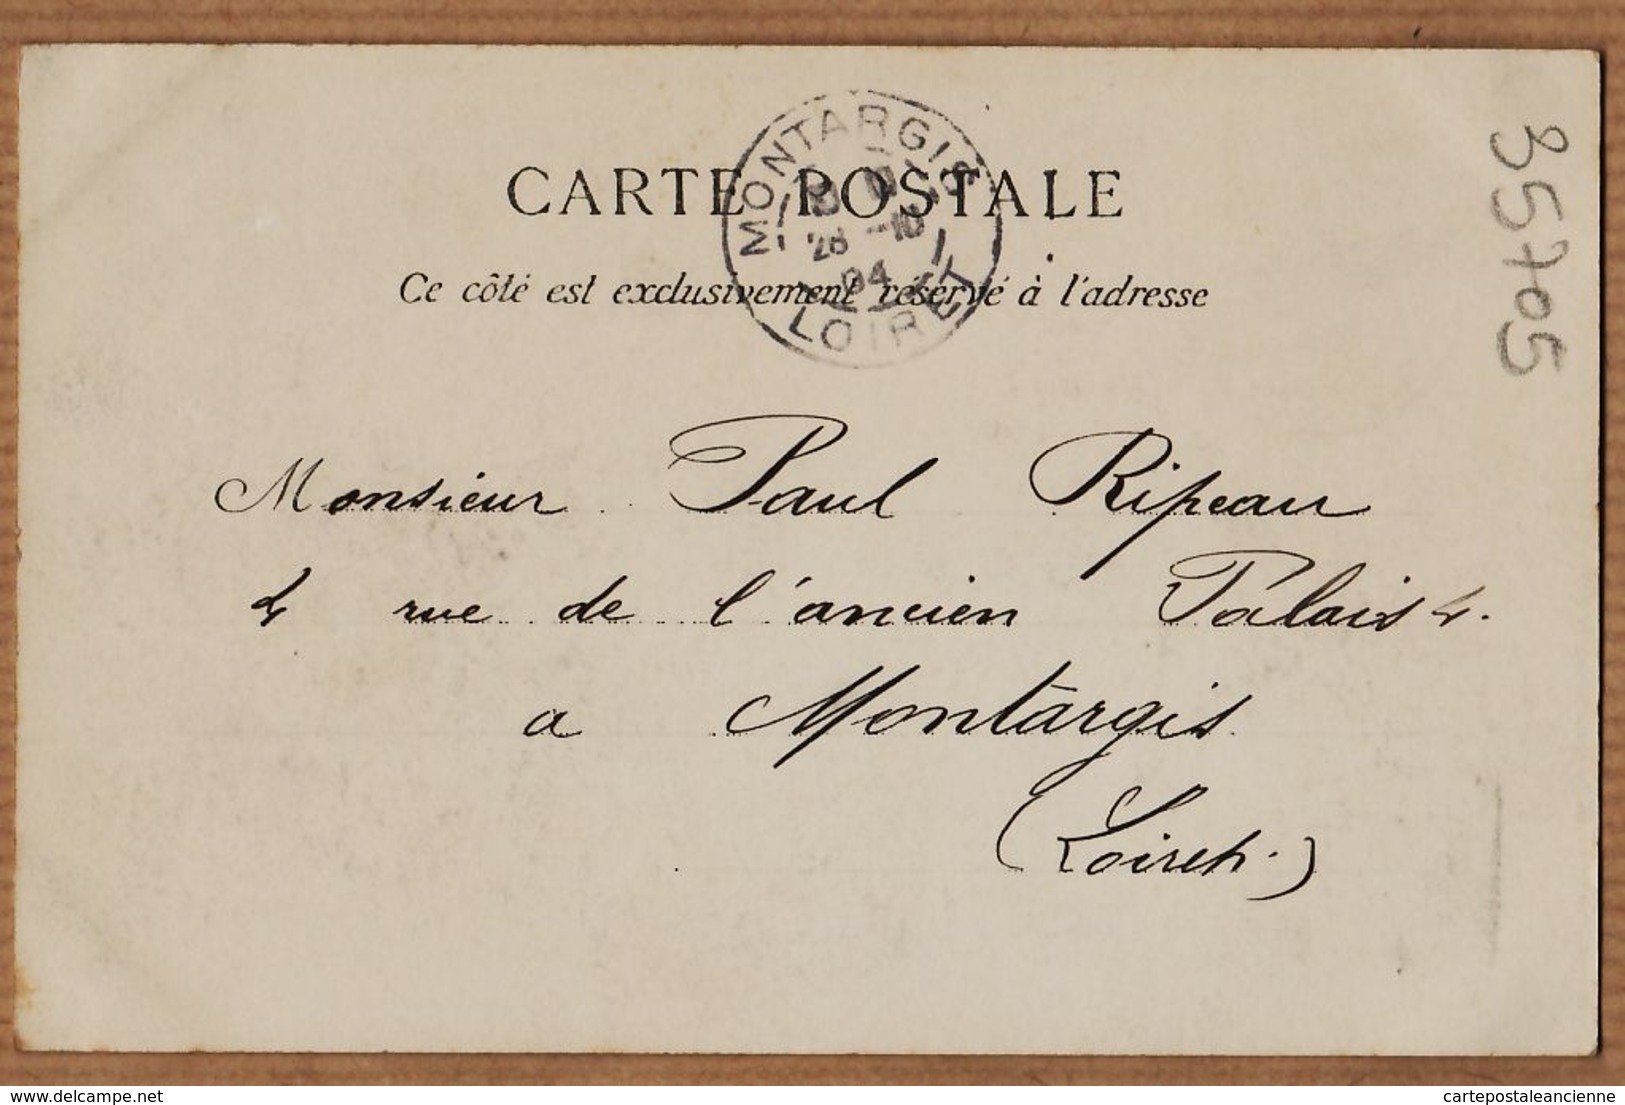 MONTARGIS
28 -10
04
LOIRET
CARTE POSTALE
Ce côté est exclusivement réservé à l'adresse
35705
Monsieur Paul Ripeau
4 rue de l'ancien Palais 4.
a Montargis
(Loiret.)
delcampe.net
cartepostaleancienne